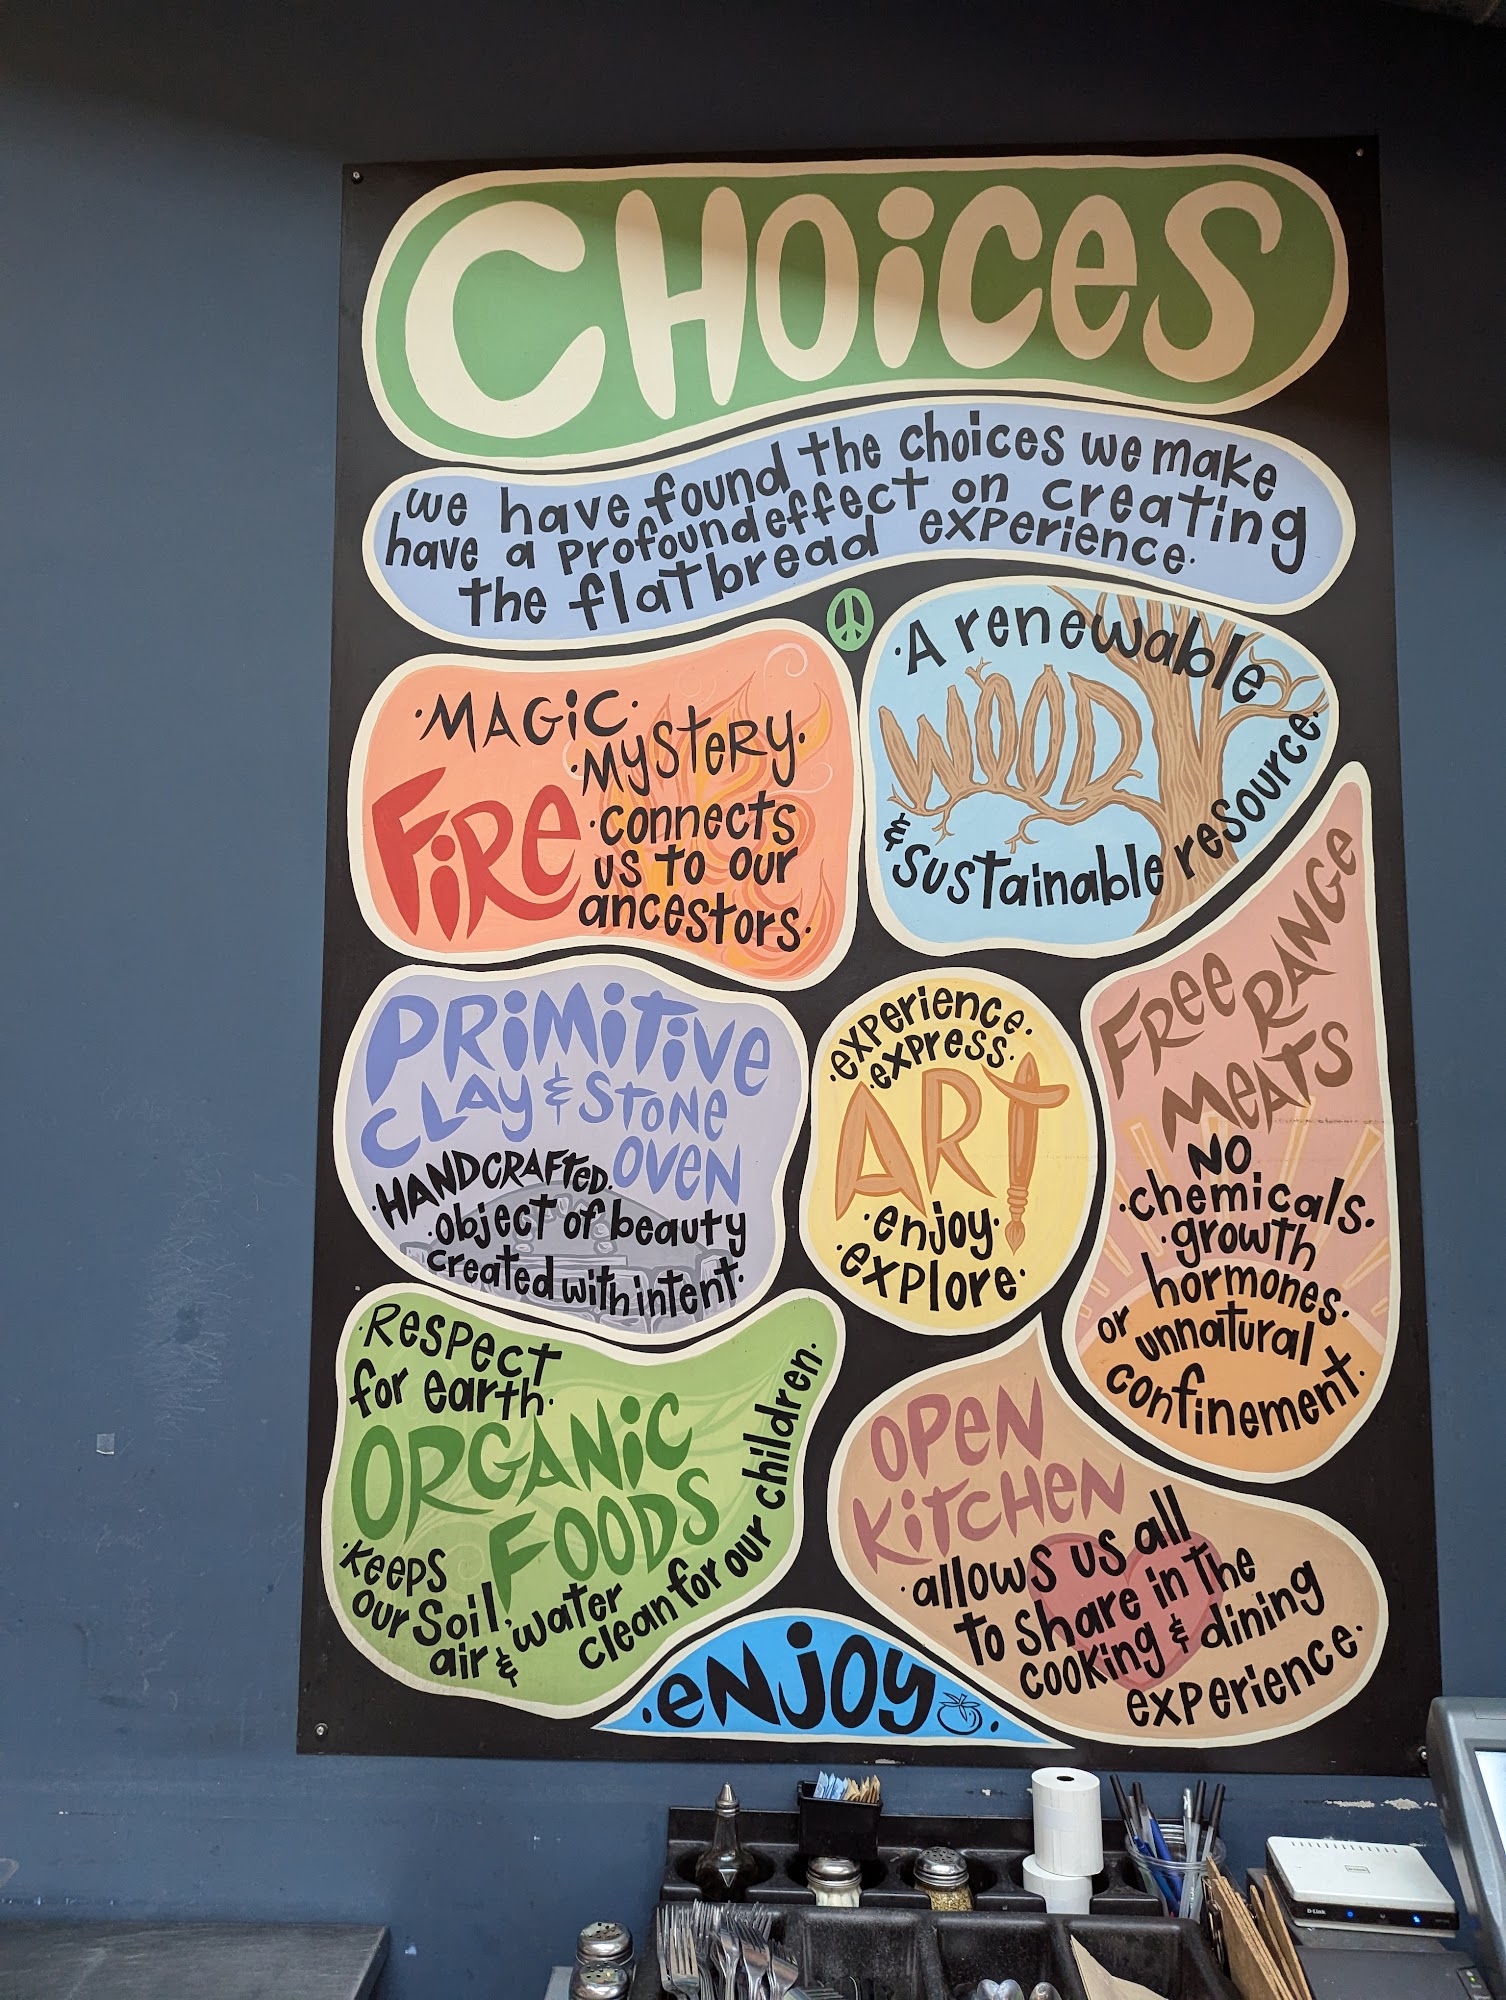 CHOiCES
we have found the choices we make
have a profound effect on creating
the flatbread experience.
·MAGiC·
·MYSTERY·
FiRE
·connects
us to our
ancestors·
·A renewable
WOOD
& sustainable resource·
PRiMiTiVE
CLAY & STONE
OVEN
·HANDCRAFTED·
·object of beauty
created with intent·
·experience·
·express·
ART
·enjoy·
·explore·
FREE RANGE
MEATS
NO
·chemicals·
·growth
hormones·
or unnatural
confinement·
·Respect
for earth·
ORGANiC
FOODS
·keeps
our soil,
air & water
clean for our children·
OPEN
KiTCHEN
·allows us all
to share in the
cooking & dining
experience·
·ENJOY·
D-Link